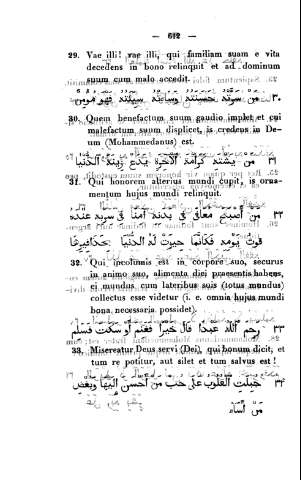 — 612 —
29. Vae illi! vae illi, qui familiam suam e vita
decedens in bono relinquit et ad dominum
suum cum malo accedit.
٣٠ من سرته حسنته وساءته سيئته فهو مومن
30. Quem benefactum suum gaudio implet et cui
malefactum suum displicet, is credens in De-
um (Mohammedanus) est.
٣١ من يشتد كرامة الآخرة يدع زينة الدنيا
31. Qui honorem alterius mundi cupit, is orna-
mentum hujus mundi relinquit.
٣٢ من أصبح معافى فى بدنه آمنا فى سربه عنده
قوت يومه فكانما حيزت له الدنيا بحذافيرها
32. Qui incolumis est in corpore suo, securus
in animo suo, alimenta diei praesentis habens,
ei mundus cum lateribus suis (totus mundus)
collectus esse videtur (i. e. omnia hujus mundi
bona necessaria possidet).
٣٣ رحم الله عبدا قال خيرا فغنم أو سكت فسلم
33. Misereatur Deus servi (Dei), qui bonum dicit, et
tum re potitur, aut silet et tum salvus est!
٣٤ جبلت القلوب على حب من أحسن اليها وبغض
من أساء